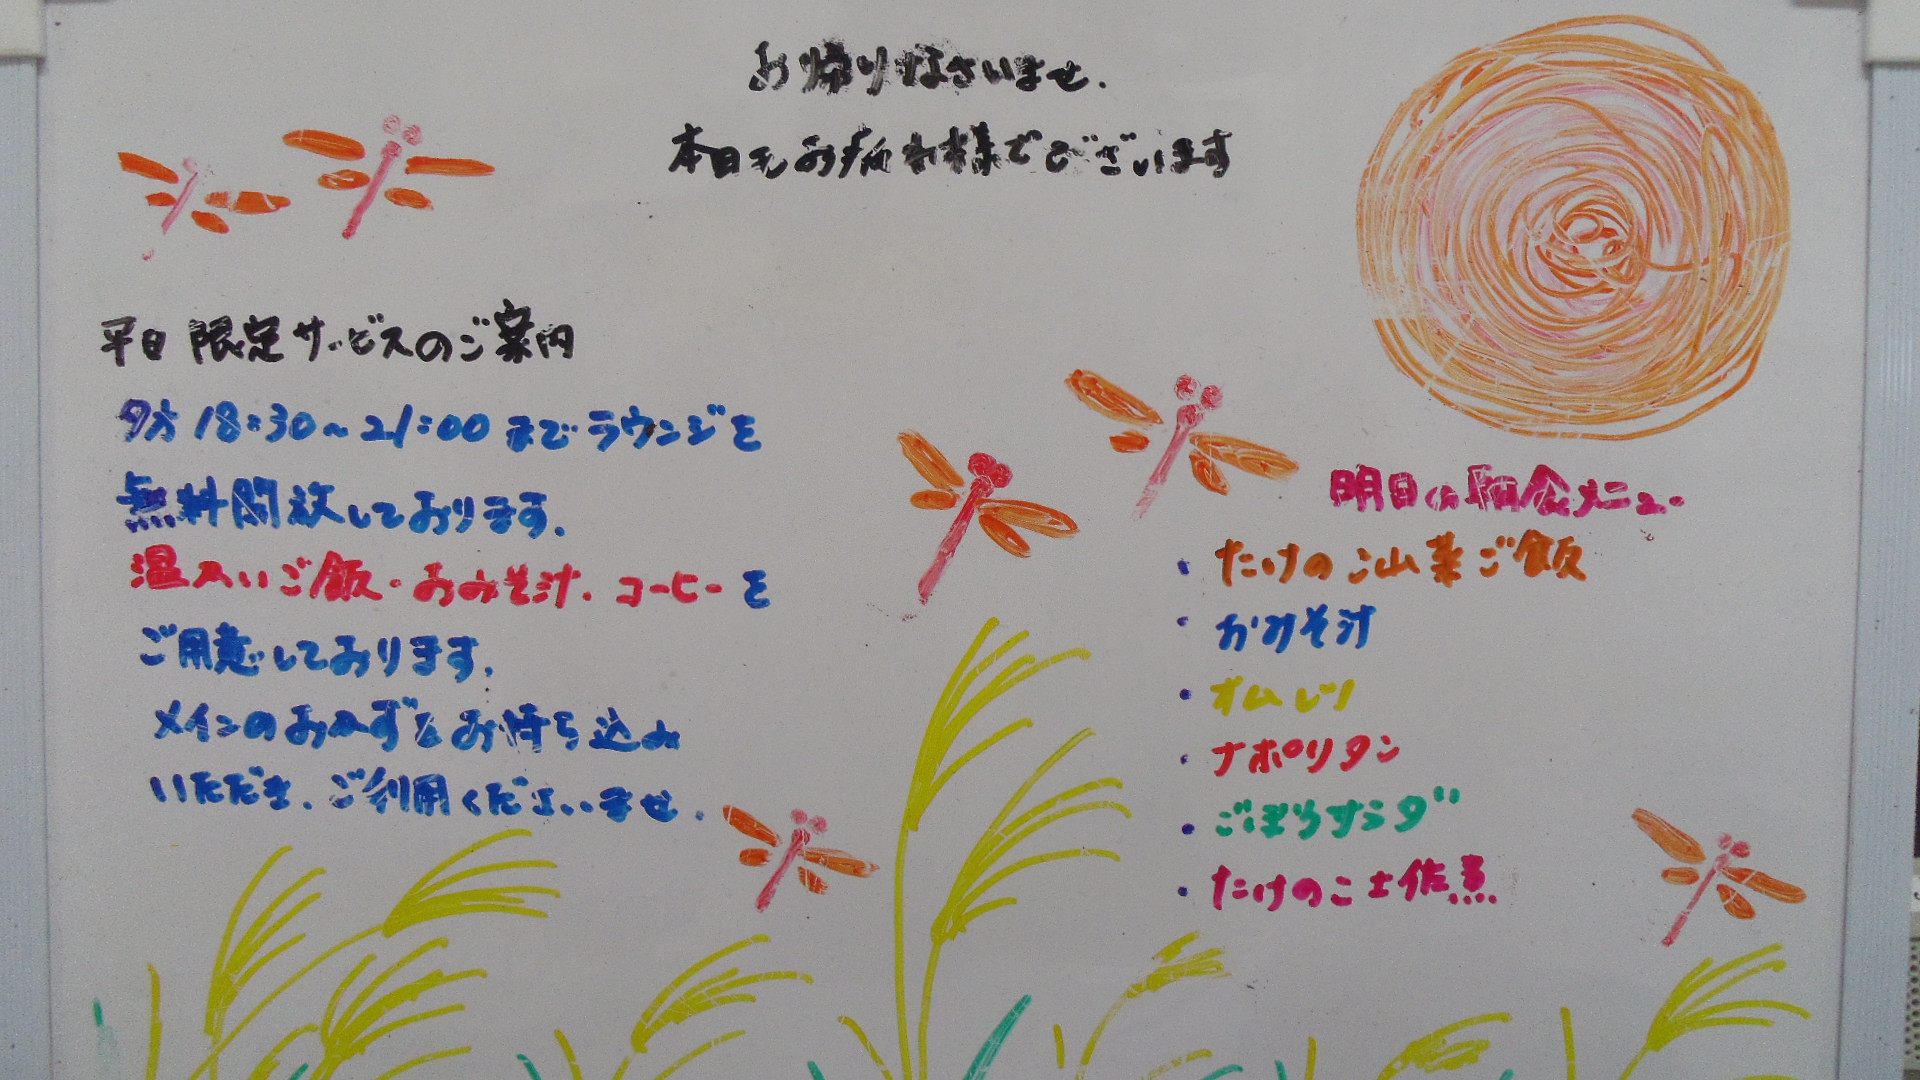 お帰りなさいませ.
本日もお疲れ様でございます
平日限定サービスのご案内
夕方18:30~21:00までラウンジを
無料開放しております.
温かいご飯・おみそ汁.コーヒーを
ご用意しております.
メインのおかずをお持ち込み
いただき、ご利用くださいませ.
明日の朝食メニュー
・たけのこ山菜ご飯
・おみそ汁
・オムレツ
・ナポリタン
・ごぼうサラダ
・たけのこ土佐煮